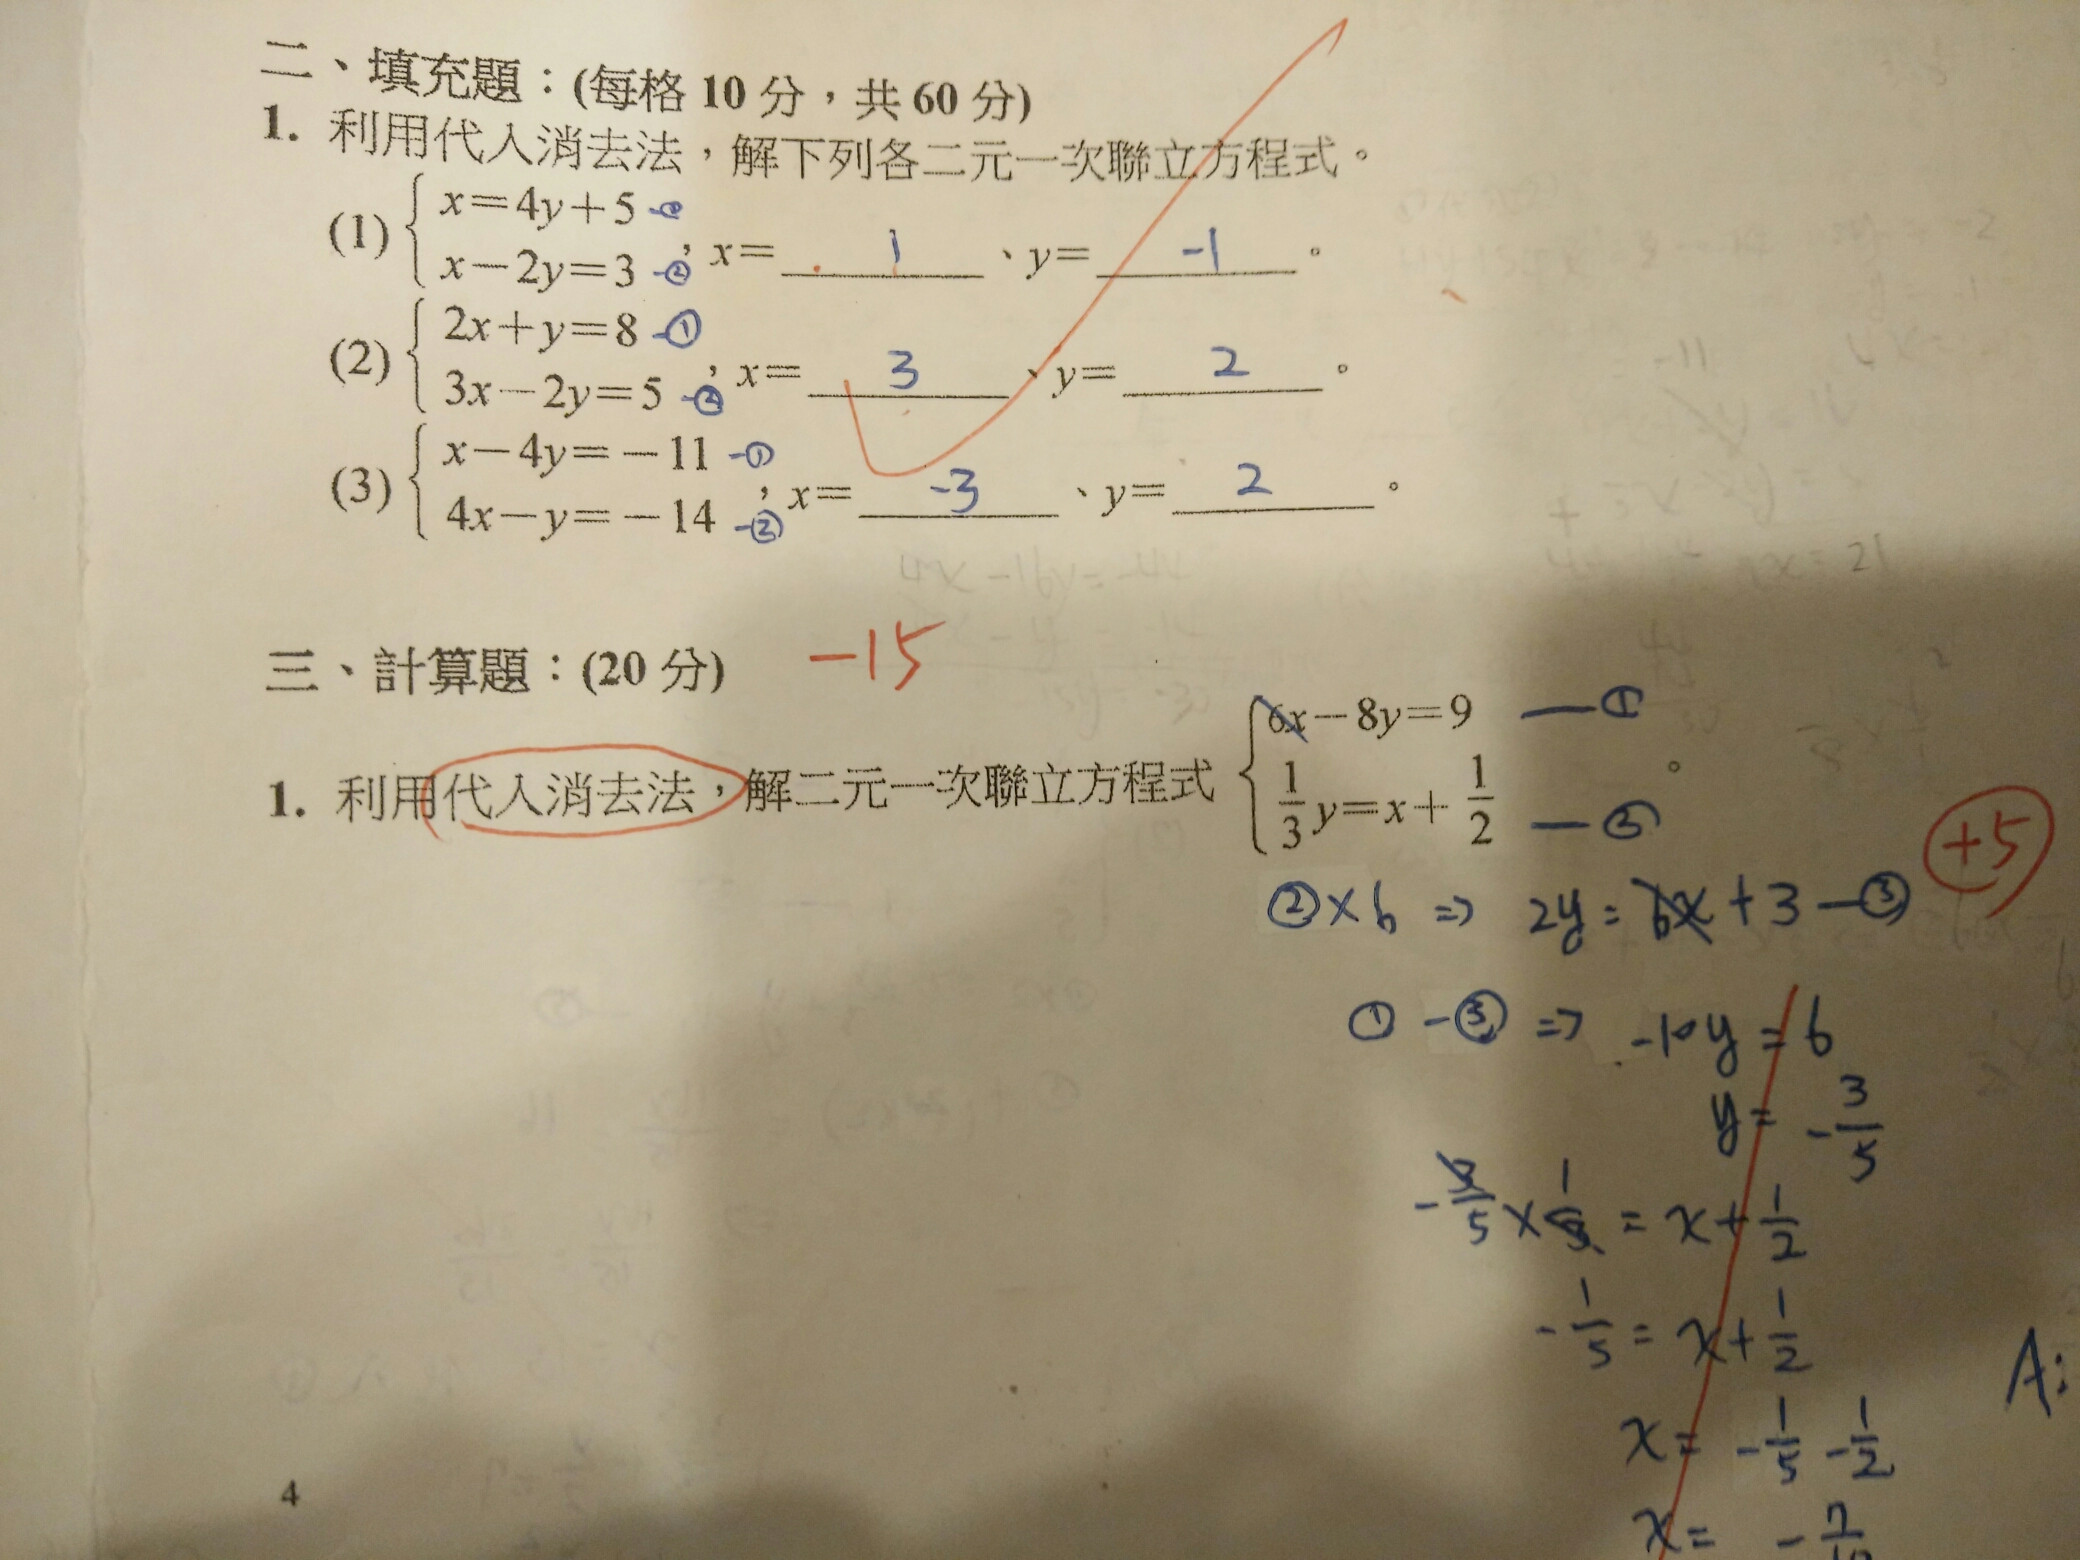 二、填充題：(每格 10 分，共 60 分)
1. 利用代入消去法，解下列各二元一次聯立方程式。
(1) { x＝4y＋5 -①
x－2y＝3 -② ，x＝ 1 、y＝ -1 。
(2) { 2x＋y＝8 -①
3x－2y＝5 -② ，x＝ 3 、y＝ 2 。
(3) { x－4y＝－11 -①
4x－y＝－14 -② ，x＝ -3 、y＝ 2 。
三、計算題：(20 分) -15
1. 利用代入消去法，解二元一次聯立方程式 { 6x－8y＝9 —①
1/3 y＝x＋ 1/2 —② 。
+5
②×6 => 2y = 6x + 3 —③
① - ③ => -10y = 6
y = -3/5
-3/5 × 1/3 = x + 1/2
-1/5 = x + 1/2
A:
x = -1/5 - 1/2
x = -7/10
4